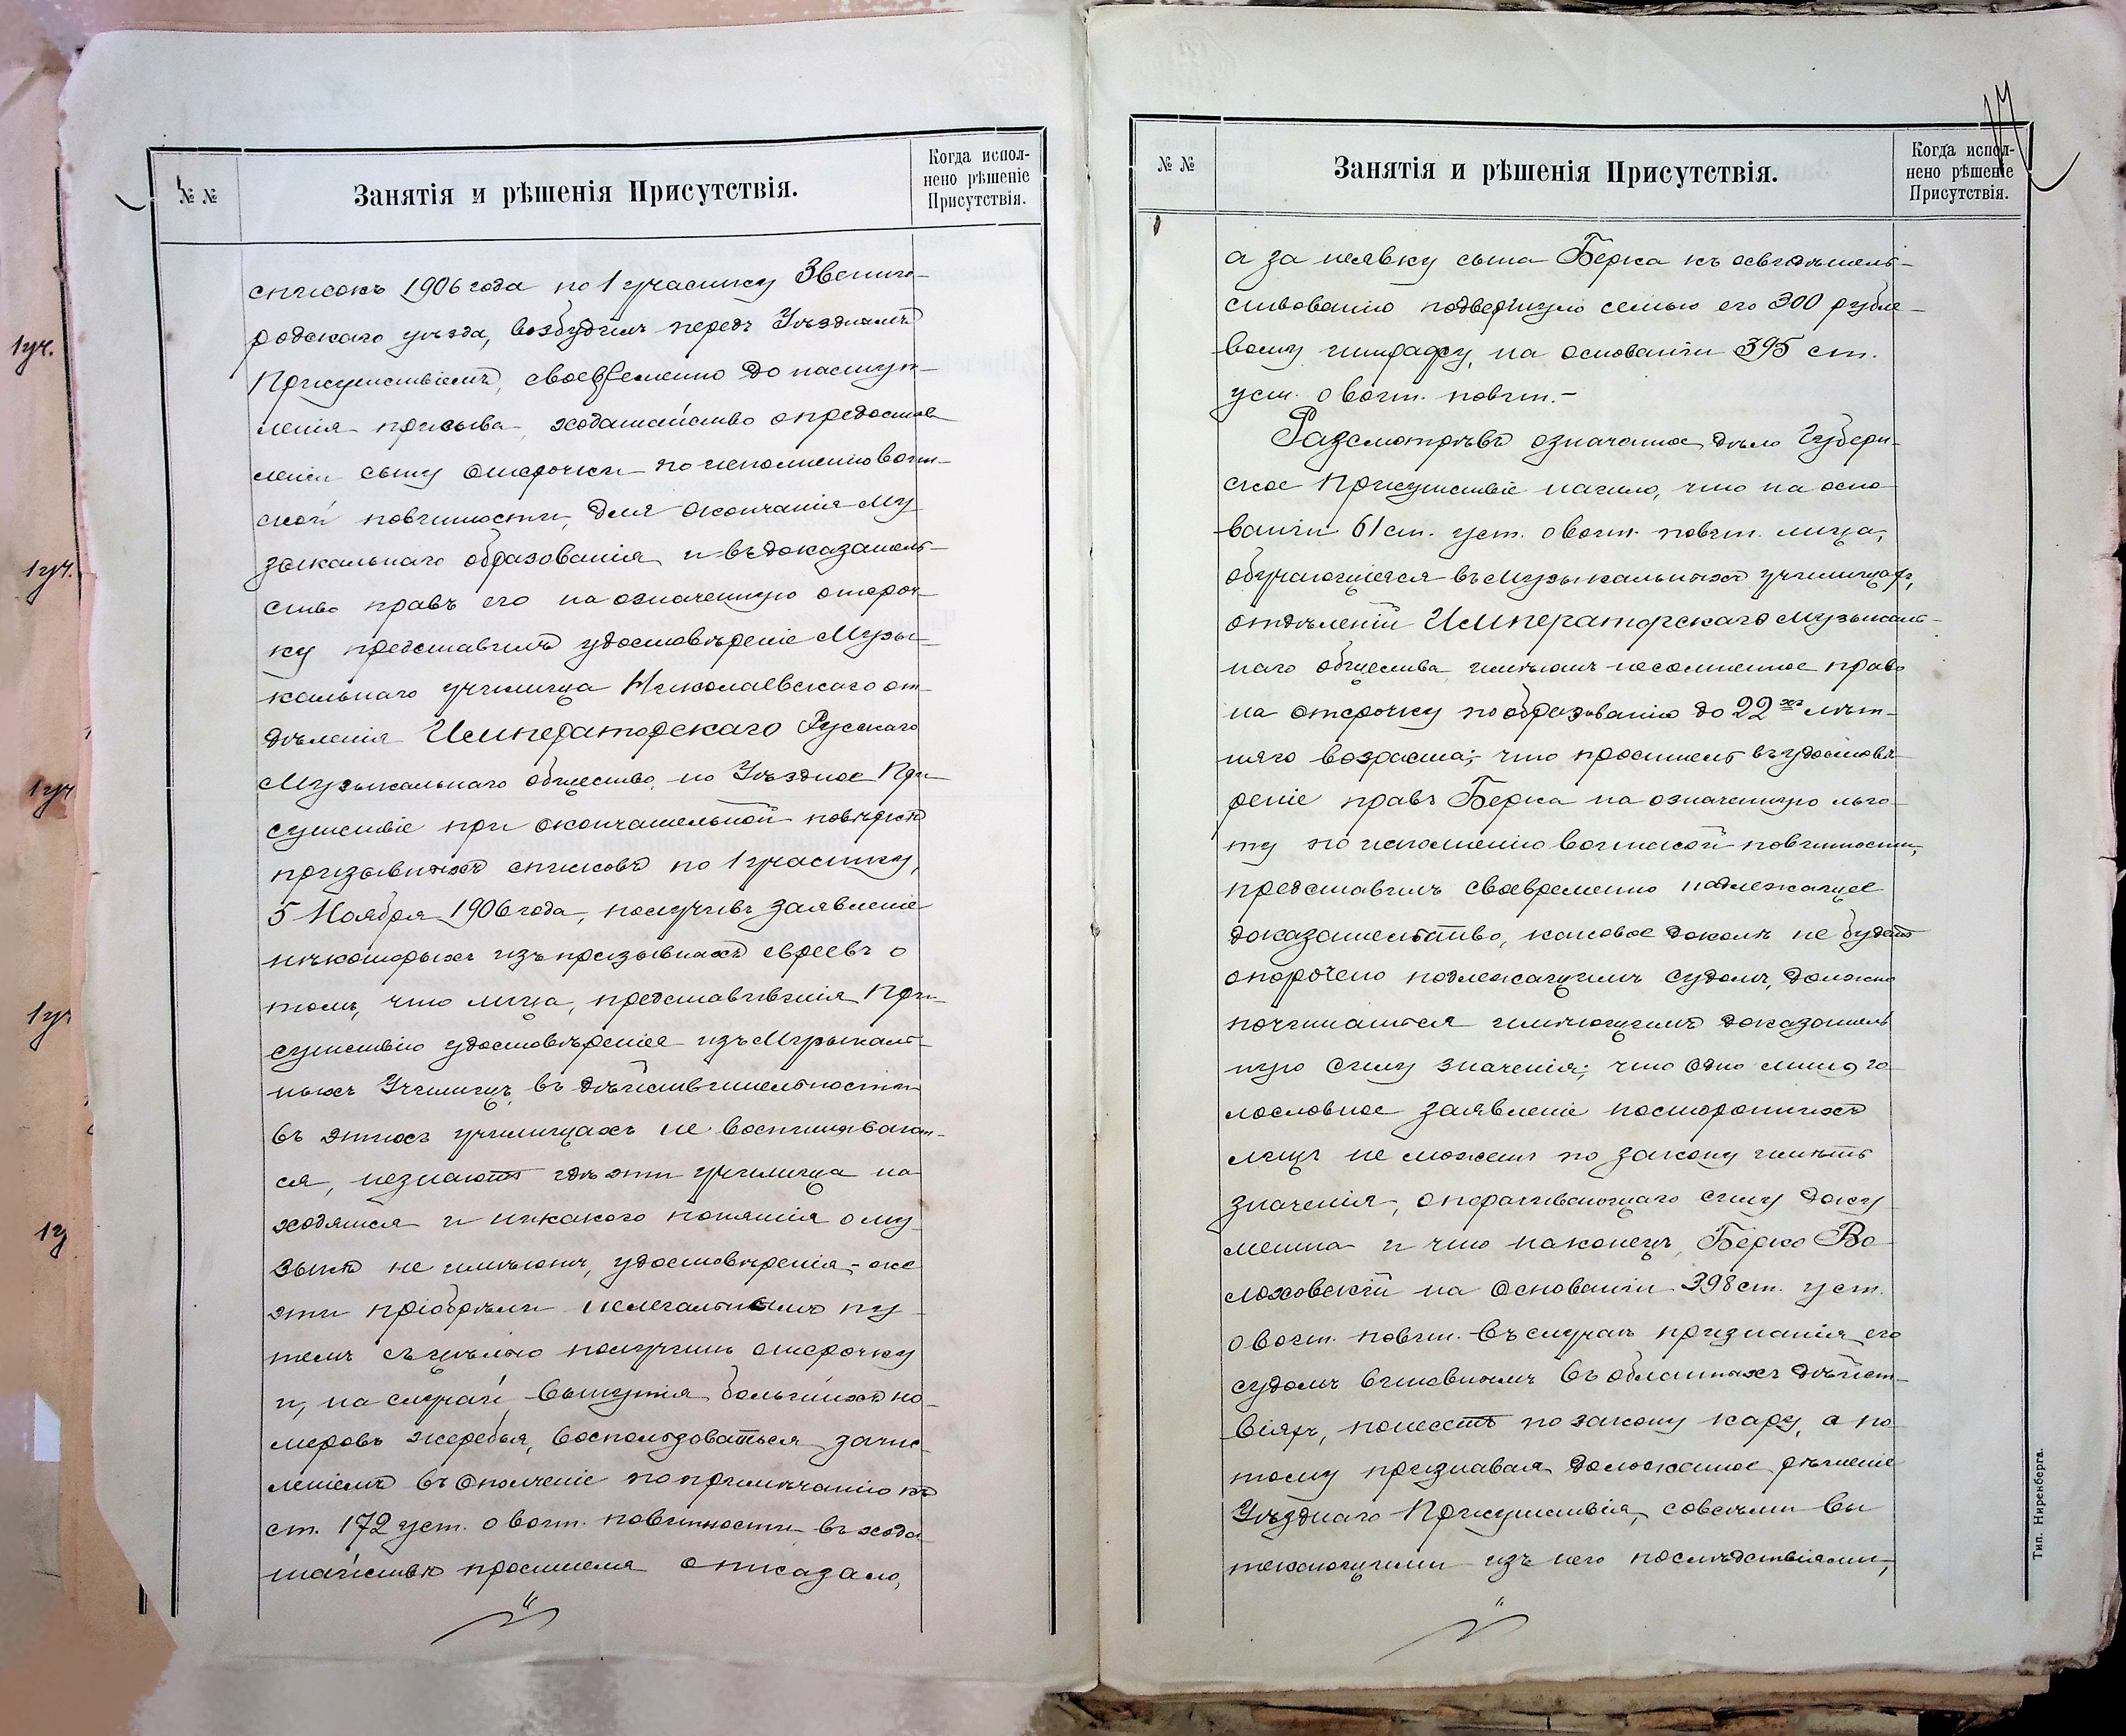 1 уч.
1 уч.
1 уч
1 уч
1 у
№ №
Занятія и рѣшенія Присутствія.
Когда испол-
нено рѣшеніе
Присутствія.
списокъ 1906 года по 1 участку Звениго-
родскаго уѣзда, возбудилъ передъ Уѣзднымъ
Присутствіемъ, своевременно до наступ-
ленія призыва, ходатайство о предостав
леніи сыну отсрочки по исполненію воин-
ской повинности, для окончанія му
зыкальнаго образованія и въ доказатель-
ство правъ его на означенную отсроч-
ку представилъ удостовѣреніе Музы-
кальнаго училища Николаевскаго от-
дѣленія Императорскаго Русскаго
Музыкальнаго общества, но Уѣздное При-
сутствіе при окончательной повѣркѣ
призывныхъ списковъ по 1 участку,
5 Ноября 1906 года, получивъ заявленіе
нѣкоторыхъ изъ призывныхъ евреевъ о
томъ, что лица, представившія При-
сутствію удостовѣренія изъ Музыкаль-
ныхъ Училищъ, въ дѣйствительности
въ этихъ училищахъ не воспитывают-
ся, незнаютъ гдѣ эти училища на
ходятся и никакого понятія о му
зыкѣ не имѣютъ, удостовѣренія-же
эти пріобрѣли нелегальнымъ пу-
темъ съ цѣлью получить отсрочку
и, на случай вынутія большихъ но-
меровъ жеребья, воспользоваться зачис-
леніемъ въ ополченіе по примѣчанію къ
ст. 172 уст. о воин. повинности въ хода
тайствѣ просителя отказало,
№ №
Занятія и рѣшенія Присутствія.
Когда испол-
нено рѣшеніе
Присутствія.
а за неявку сына Берка къ освидѣтель-
ствованію подвергнуло семью его 300 рубле-
вому штрафу, на основаніи 395 ст.
уст. о воин. повин.-
Разсмотрѣвъ означенное дѣло Губерн-
ское Присутствіе нашло, что на осно
ваніи 61 ст. уст. о воин. повин. лица,
обучающіяся въ Музыкальныхъ училищахъ,
отдѣленій Императорскаго Музыкаль-
наго общества имѣютъ несомненное право
на отсрочку по образованію до 22хъ лѣт-
няго возраста; что проситель въ удостовѣ
реніе правъ Берка на означенную льго-
ту по исполненію воинской повинности,
представилъ своевременно надлежащее
доказательство, каковое доколѣ не будетъ
опорочено подлежащимъ судомъ, должно
почитаться имѣющимъ доказатель
ную силу значенія; что одно лишь го-
лословное заявленіе постороннихъ
лицъ не можетъ по закону имѣть
значенія, опорачивающаго силу доку-
мента и что наконецъ, Берко Во-
ложовскій на основаніи 398 ст. уст.
о воин. повин. въ случаѣ признанія его
судомъ виновнымъ въ обманныхъ дѣйст-
віяхъ, понесетъ по закону кару, а по
тому признавая доложенное рѣшеніе
Уѣзднаго Присутствія, со всѣми вы
текающими изъ него послѣдствіями,
Тип. Ниренберга.